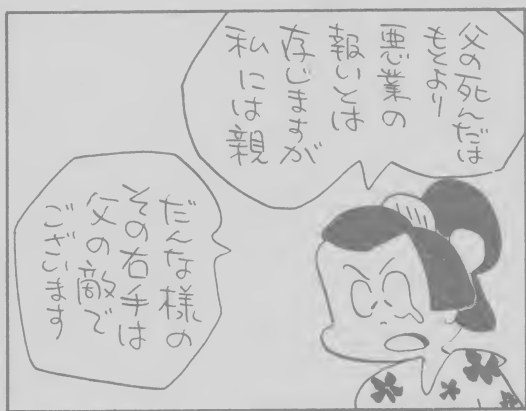 父の死んだは
もとより
悪業の
報いとは
存じますが
私には親
だんな様の
その右手は
父の敵で
ございます